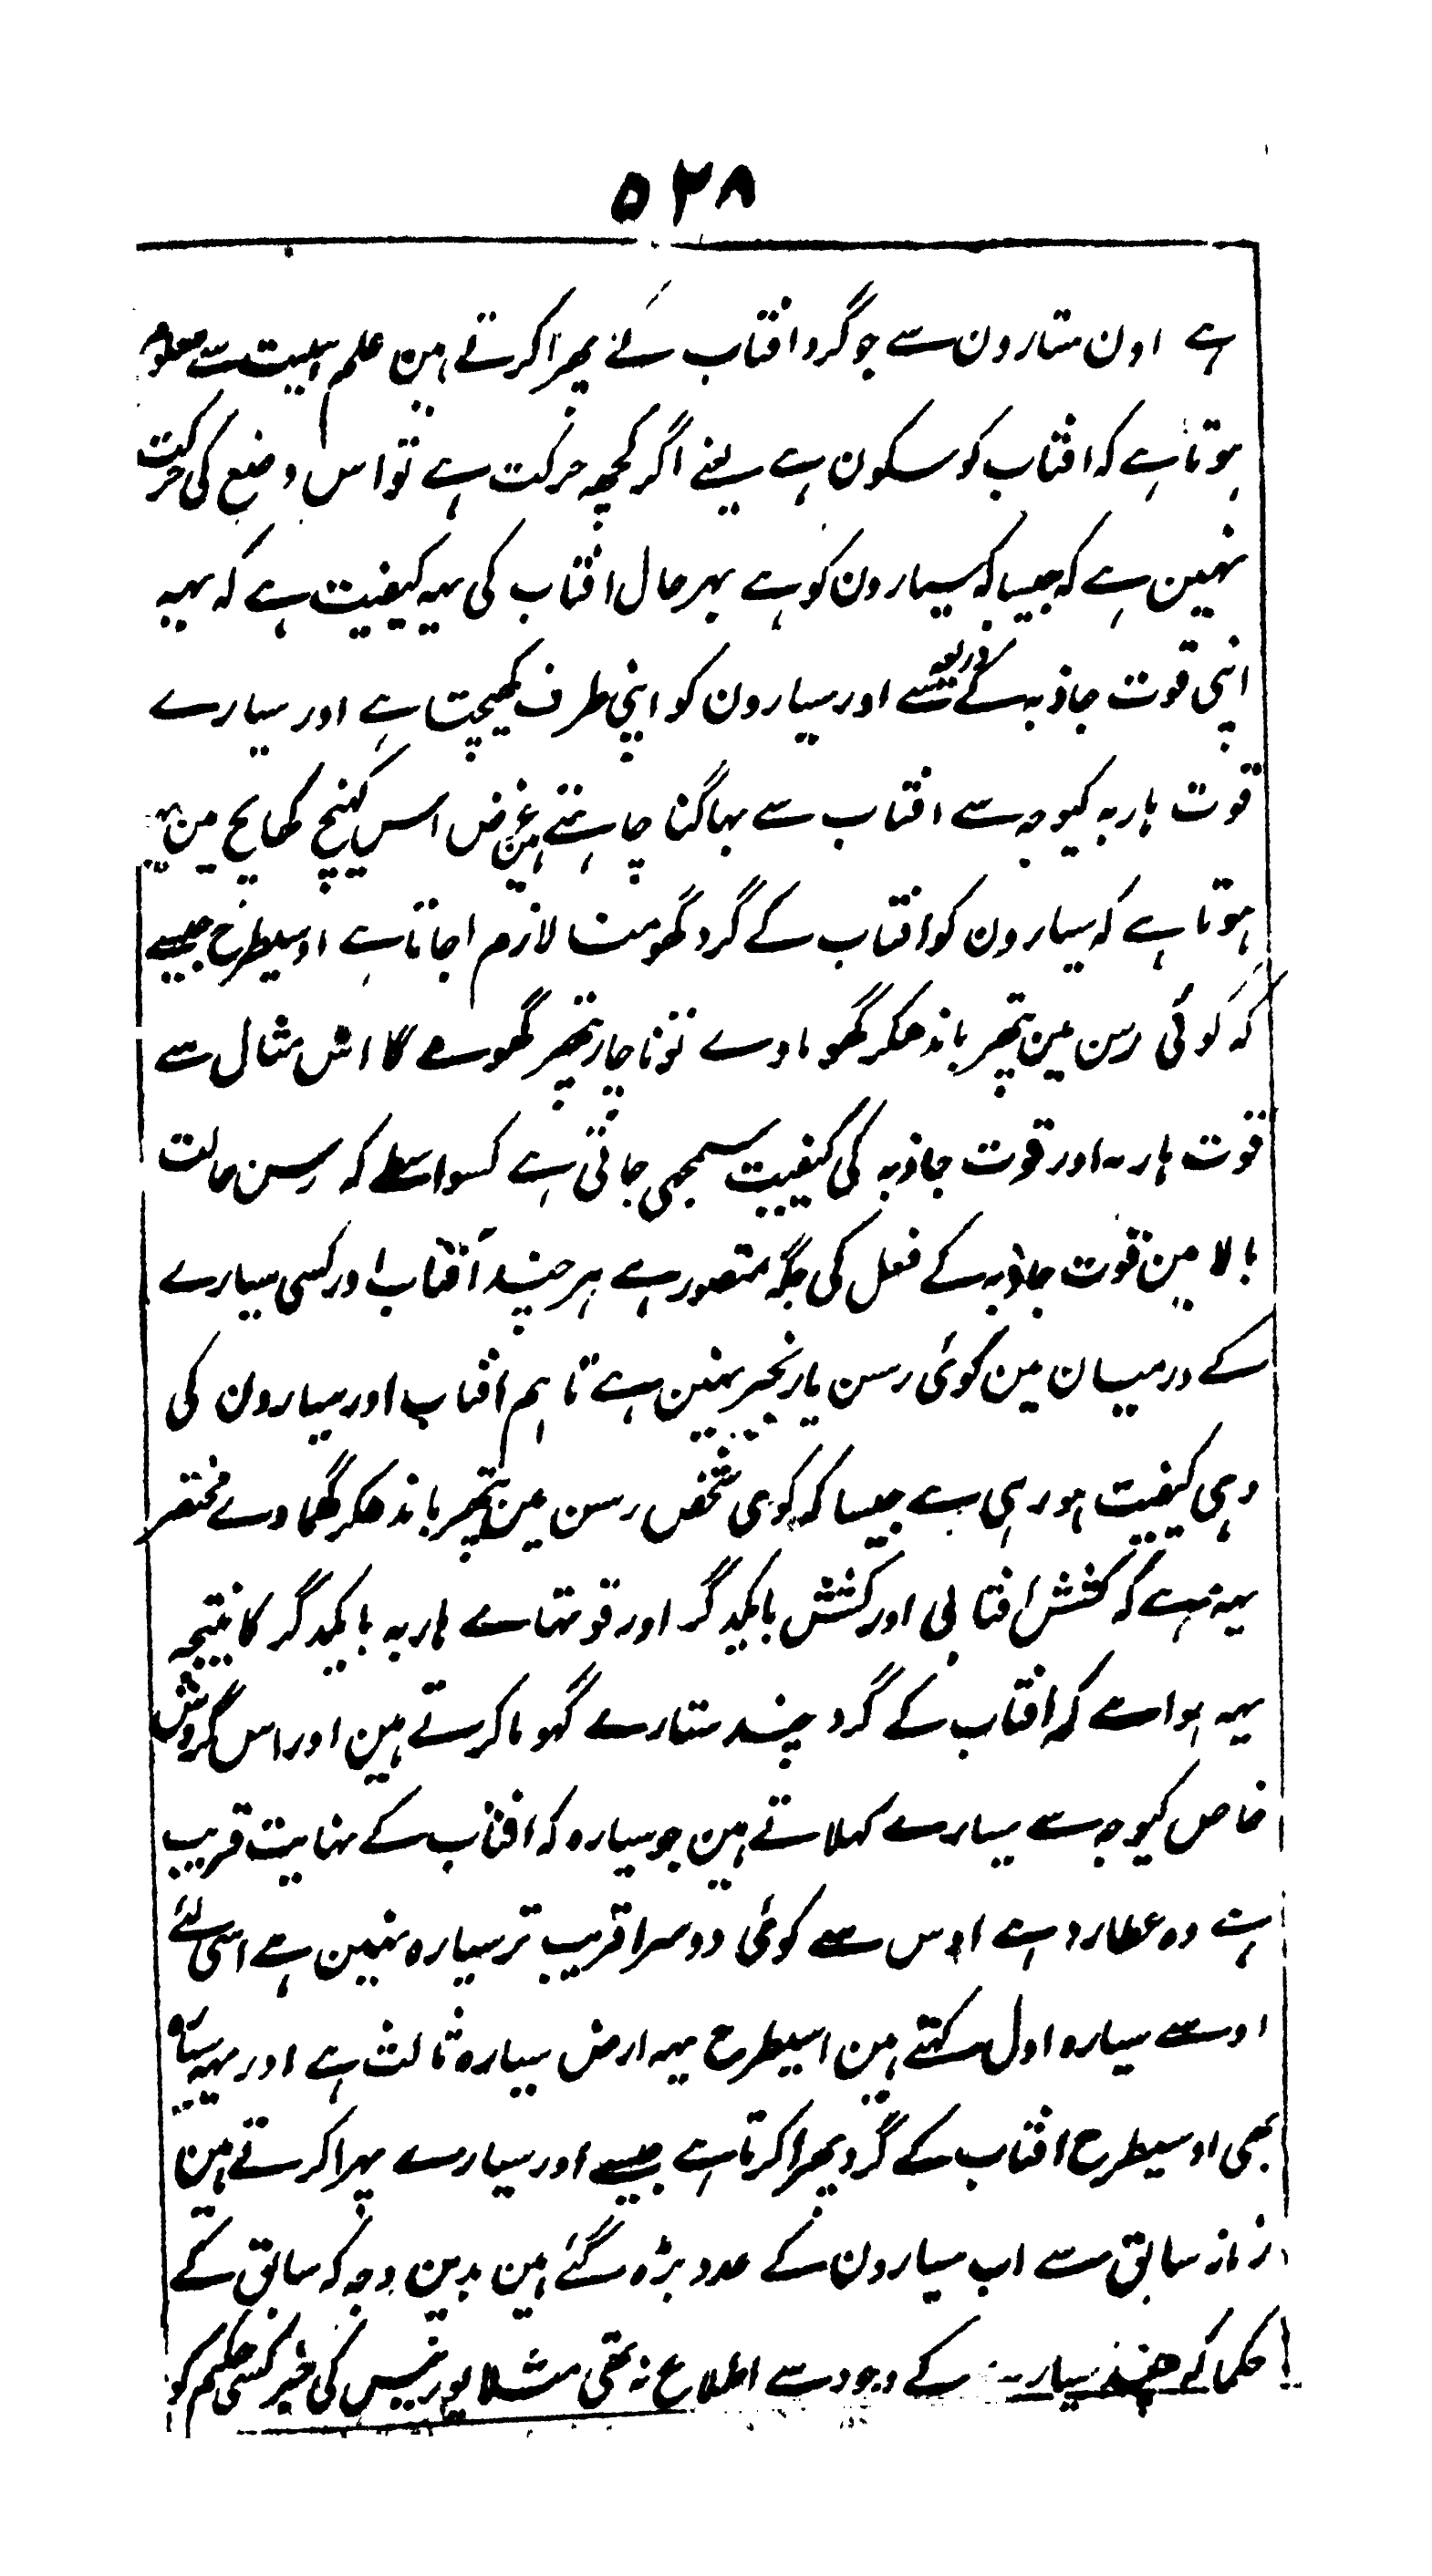 ۵۲۸
ہے اون ستارون سے جو گرد افتاب کے پھرا کرتے ہین علم ہیئیت سے معلوم
ہوتا ہے کہ افتاب کو سکون ہے یعنے اگر کچھہ حرکت ہے تو اس وضع کی حرکت
نہین ہے کہ جیسا کہ سیارون کو ہے بہر حال افتاب کی یہہ کیفیت ہے کہ یہہ
اپنی قوت جاذبہ کے ذریعہ سے اور سیارون کو اپنی طرف کھیچتا ہے اور سیارے
قوت ہاربہ کیوجہ سے افتاب سے بہاگنا چاہتے ہین غرض اس کہنچ کھانچ مین یہہ
ہوتا ہے کہ سیارون کو افتاب کے گرد گھومنا لازم اجاتا ہے اوسیطرح جیسے
کہ کوئی رسن مین پتھر باندھکر گھوماوے تو ناچار پتھر گھومے گا اس مثال سے
قوت ہاربہ اور قوت جاذبہ کی کیفیت سمجھی جاتی ہے کسواسطے کہ رسن حالت
بالا مین قوت جاذبہ کے فعل کی جگہ متصور ہے ہر چند آفتاب اور کسی سیارے
کے درمیان مین کوئی رسن یا زنجیر نہین ہے تاہم افتاب اور سیارون کی
وہی کیفیت ہو رہی ہے جیسا کہ کوی شخص رسن مین پتھر باندھکر گھماوے مختصر
یہہ ہے کہ کشش افتابی اور کشش بایکدگر اور قوتہاے ہاربہ بایکدگر کا نتیجہ
یہہ ہوا ہے کہ افتاب کے گرد چند ستارے گہوما کرتے ہین اور اس گردش
خاص کیوجہ سے سیارے کہلاتے ہین جو سیارہ کہ افتاب کے نہایت قریب
ہے وہ عطارد ہے اوس سے کوئی دوسرا قریب تر سیارہ نہین ہے اسی لئے
اوسے سیارہ اول کہتے ہین اسیطرح یہہ ارض سیارہ ثالث ہے اور یہہ سیارہ
بھی اوسیطرح افتاب کے گرد پھرا کرتا ہے جیسے اور سیارے پہرا کرتے ہین
زمانہ سابق سے اب سیارون کے عدد بڑہ گئے ہین بدین وجہ کہ سابق کے
حکما کو چند سیارے کے وجود سے اطلاع نہ تھی مثلا یورنیس کی خبر کسی حکیم کو